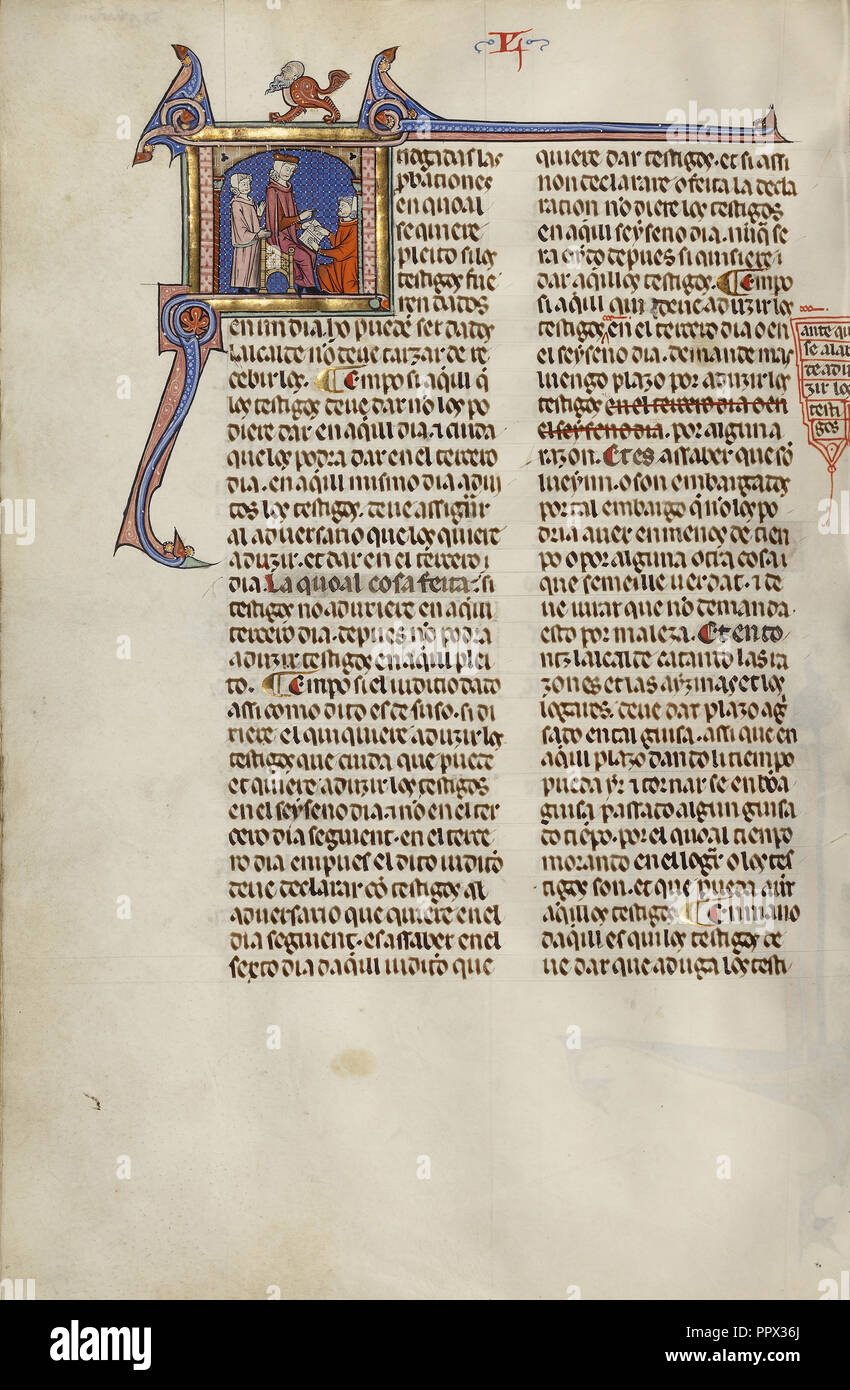 VI
tiogadas las
pbationes
en quoal
se quiere
pleito si los
testigos fue
ren dados
en un dia. ho puede ser dados
lalcalde nō deue tarzar de re
cebir los. Empo si aqui q̄
los testigos deue dar nō los po
diere dar en aqui dia. ⁊ cuida
que los podra dar en el tercero
dia. en aqui mismo dia adui
tos los testigos. deue assignar
al aduersario que los quiere
aduzir. et dar en el tercero
dia. La quoal cosa feita. si
testigos no aduxiere en aqui
tercero dia. depues nō podra
aduzir testigos en aqui plei
to. Empo si el iuditio dado
assi como dito es de suso. si di
xiere el qui quiere aduzir los
testigos que cuida que puede
et quiere aduzir los testigos
en el seyseno dia. ⁊ no en el ter
cero dia seguient. en el terce
ro dia empues el dito iudito
deue declarar cō testigos al
aduersario que quiere en el
dia seguient. es assaber en el
sexto dia daqui iudito que
quiere dar testigos. et si assi
non declarare o feita la decla
ration nō diere los testigos
en aqui seyseno dia. nuq̄ se
ra oydo depues si quisiere
dar aqillos testigos. Empo
si aqui qui deue aduzir los
testigos en el tercero dia o en
el seyseno dia. demande mas
luengo plazo por aduzir los
testigos en el tercero dia o en
el seyseno dia. por alguna
razon. Et es assaber que sō
lueynn. o son embargados
por tal embargo q̄ nō los po
dria auer en menos de tien
po o por alguna otra cosa
que semeille uerdat. ⁊ de
ue iurar que nō demanda
esto por maleza. Et en to
ntz lalcalde catando las ra
zones et las aȳzinas et los
logares. deue dar plazo aḡ
sado en tal guisa. assi que en
aqui plazo dando li tiempo
pueda yr ⁊ tornar se en bōa
guisa passado algun guisa
do tiēpo. por el quoal tiempo
morando en el logar o los tes
tigos son. et que pueda aūr
aqillos testigos. Enpiano
daqui es qui los testigos de
ue dar que aduga los testi
ante qu
se alar
de adu
zir los
testi
gos
alamy
Image ID: PPX36J
www.alamy.com